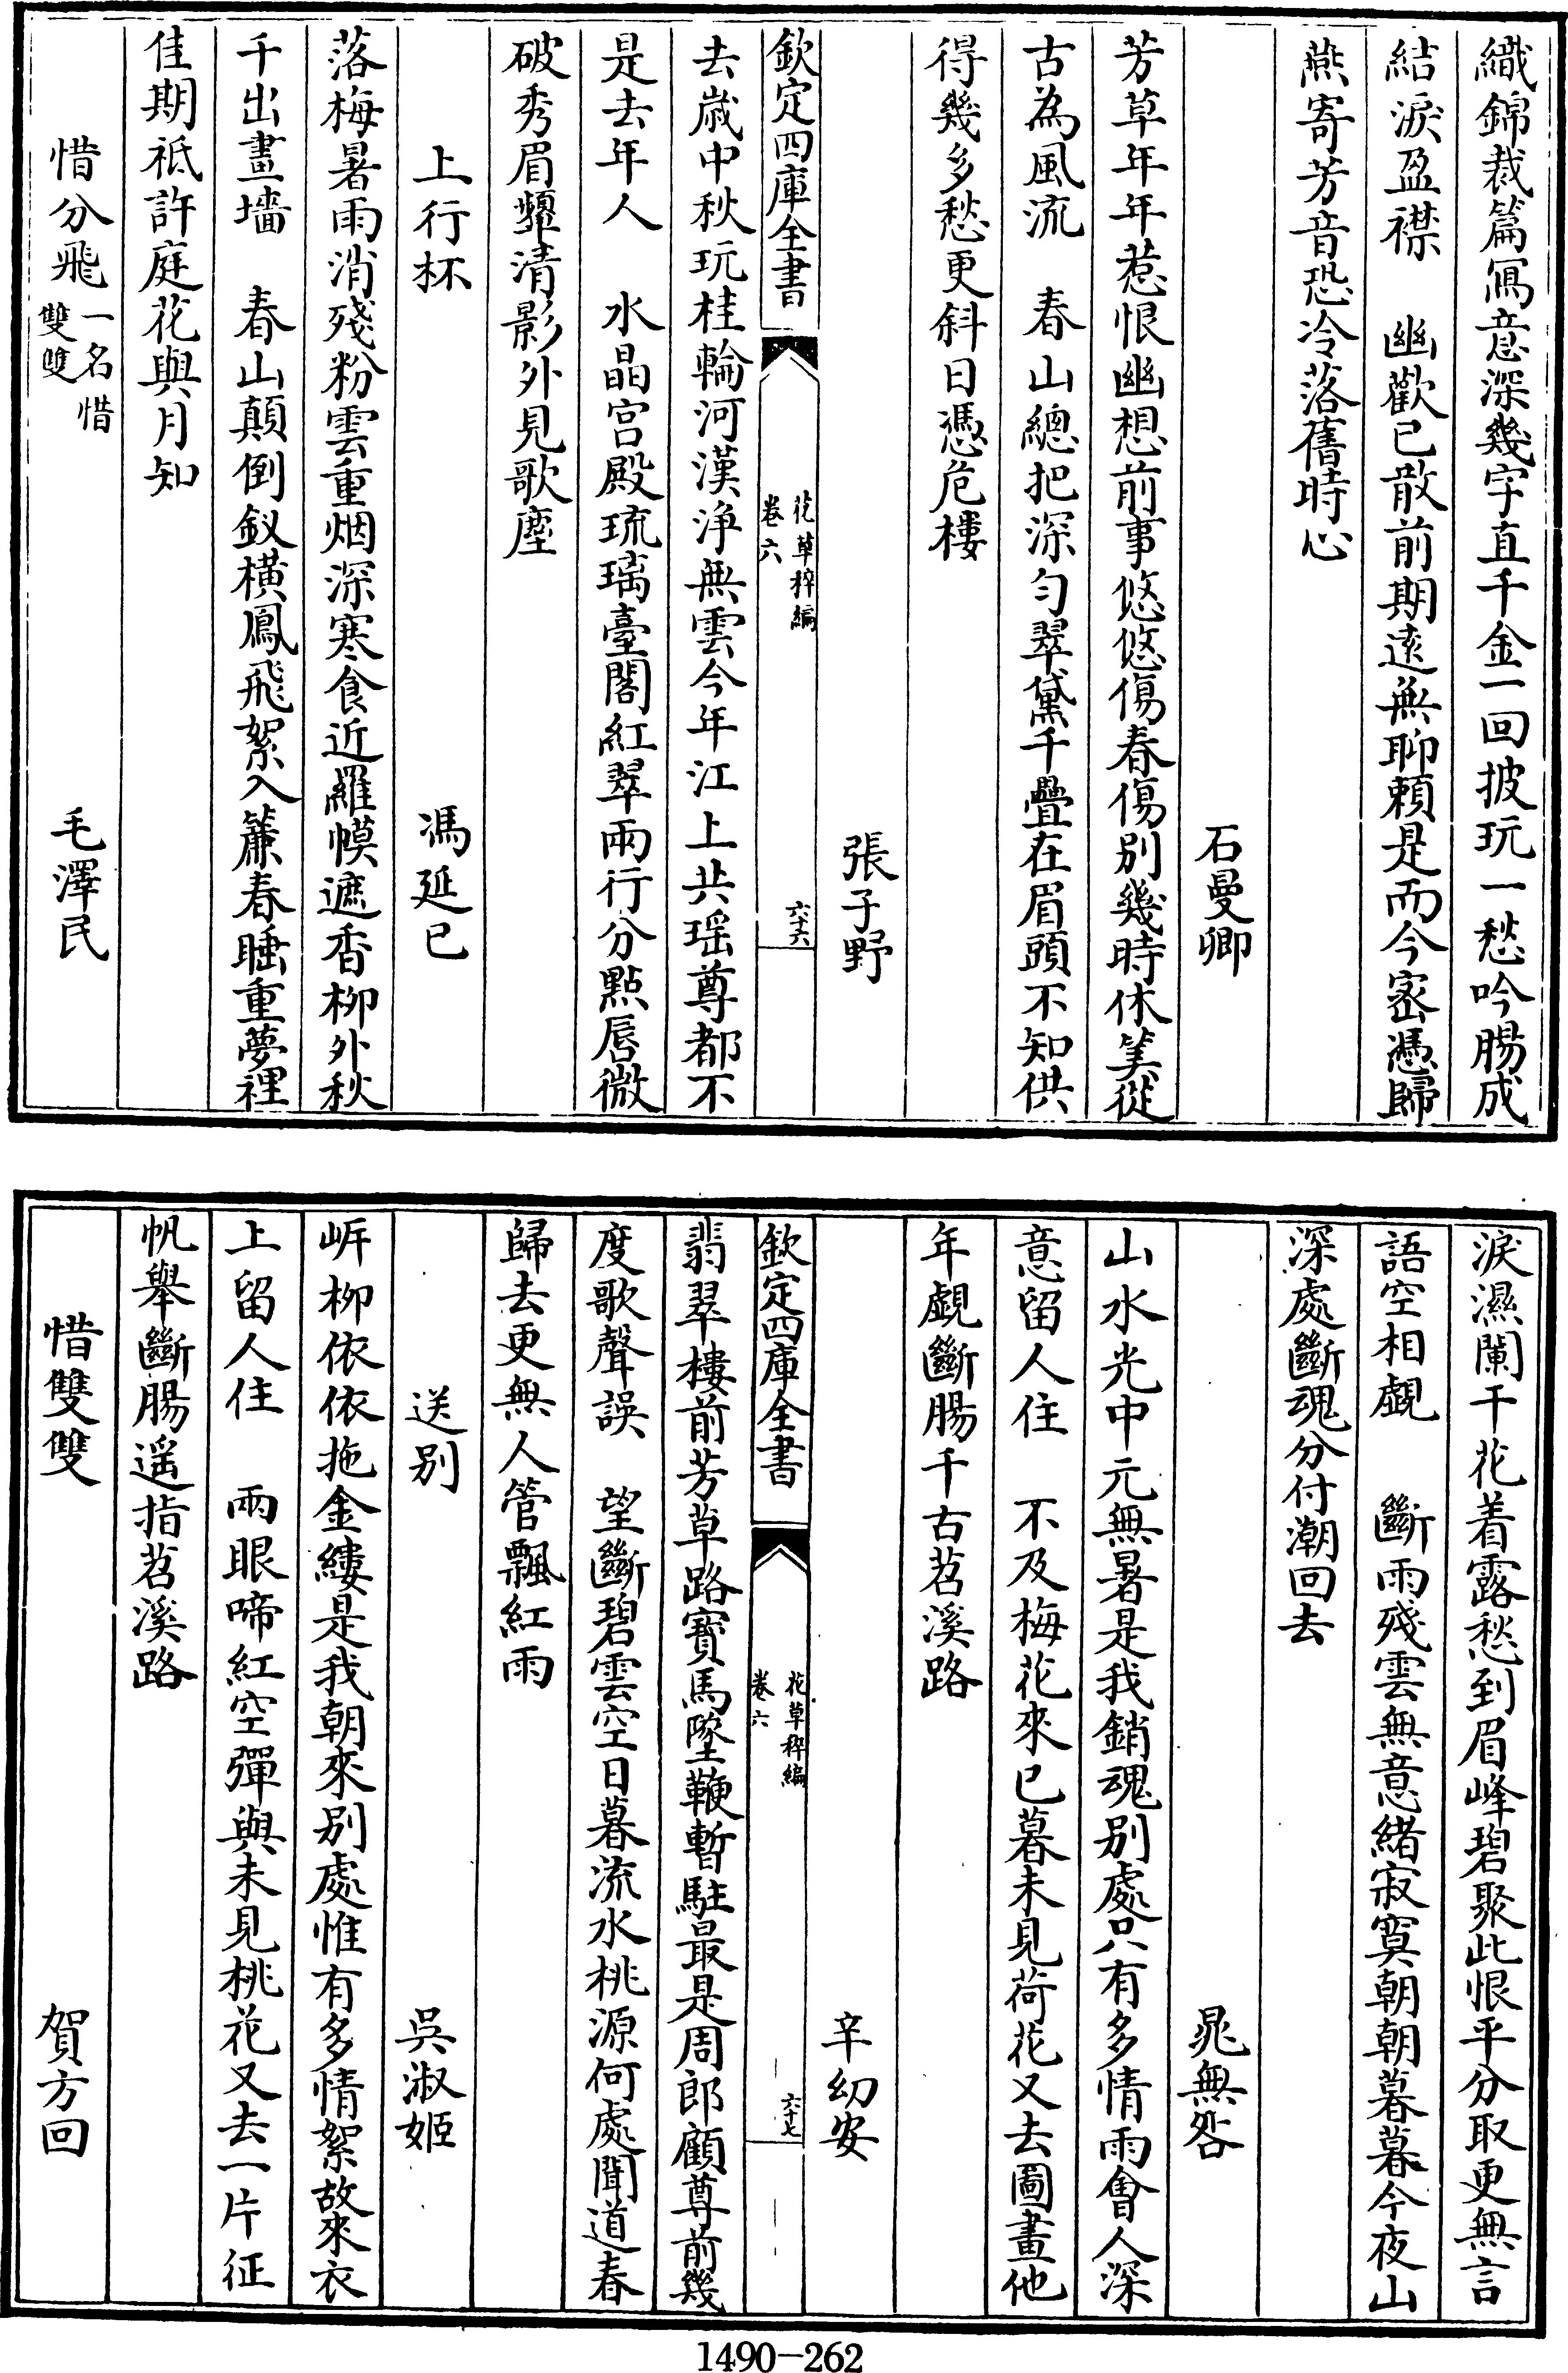 織錦裁篇寫意深幾字直千金一回披玩一愁吟腸成
結淚盈襟　幽歡已散前期遠無聊賴是而今密憑歸
燕寄芳音恐冷落舊時心
石曼卿
芳草年年惹恨幽想前事悠悠傷春傷別幾時休筭從
古為風流　春山總把深勻翠黛千疊在眉頭不知供
得幾多愁更斜日憑危樓
張子野
欽定四庫全書　花草稡編卷六　六十六
去歲中秋玩桂輪河漢淨無雲今年江上共瑶尊都不
是去年人　水晶宫殿琉璃臺閣紅翠兩行分點唇微
破秀眉顰清影外見歌塵
上行杯　馮延巳
落梅暑雨消殘粉雲重烟深寒食近羅幙遮香柳外秋
千出畫墻　春山顛倒釵橫鳳飛絮入簾春睡重夢裡
佳期祗許庭花與月知
惜分飛一名惜雙雙　毛澤民
淚濕闌干花着露愁到眉峰碧聚此恨平分取更無言
語空相覷　斷雨殘雲無意緒寂寞朝朝暮暮今夜山
深處斷魂分付潮回去
晁無咎
山水光中元無暑是我銷魂別處只有多情雨會人深
意留人住　不及梅花來已暮未見荷花又去圖畫他
年覷斷腸千古苕溪路
辛幼安
欽定四庫全書　花草稡編卷六　六十七
翡翠樓前芳草路寶馬墜鞭暫駐最是周郎顧尊前幾
度歌聲誤　望斷碧雲空日暮流水桃源何處聞道春
歸去更無人管飄紅雨
送別　吳淑姬
岍柳依依拖金縷是我朝來別處惟有多情絮故來衣
上留人住　兩眼啼紅空彈與未見桃花又去一片征
帆舉斷腸遥指苕溪路
惜雙雙　賀方回
1490—262